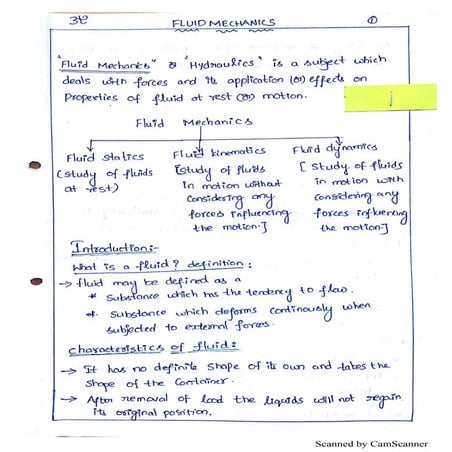 FLUID MECHANICS
①
"Fluid Mechanics" & "Hydraulics" is a subject which
deals with forces and its application (or) effects on
Properties of fluid at rest (or) motion.
Fluid Mechanics
Fluid statics
(study of fluids
at rest)
Fluid kinematics
[study of fluids
in motion without
considering any
forces influencing
the motion.]
Fluid dynamics
[study of fluids
in motion with
considering any
forces influencing
the motion]
Introduction:-
What is a fluid? definition:
→ fluid may be defined as a
* Substance which has the tendency to flow.
*. Substance which deforms continously when
subjected to external forces.
characteristics of fluid:
→ It has no definite shape of its own and takes the
shape of the container.
→ After removal of load the liquids will not regain
its original position.
Scanned by CamScanner